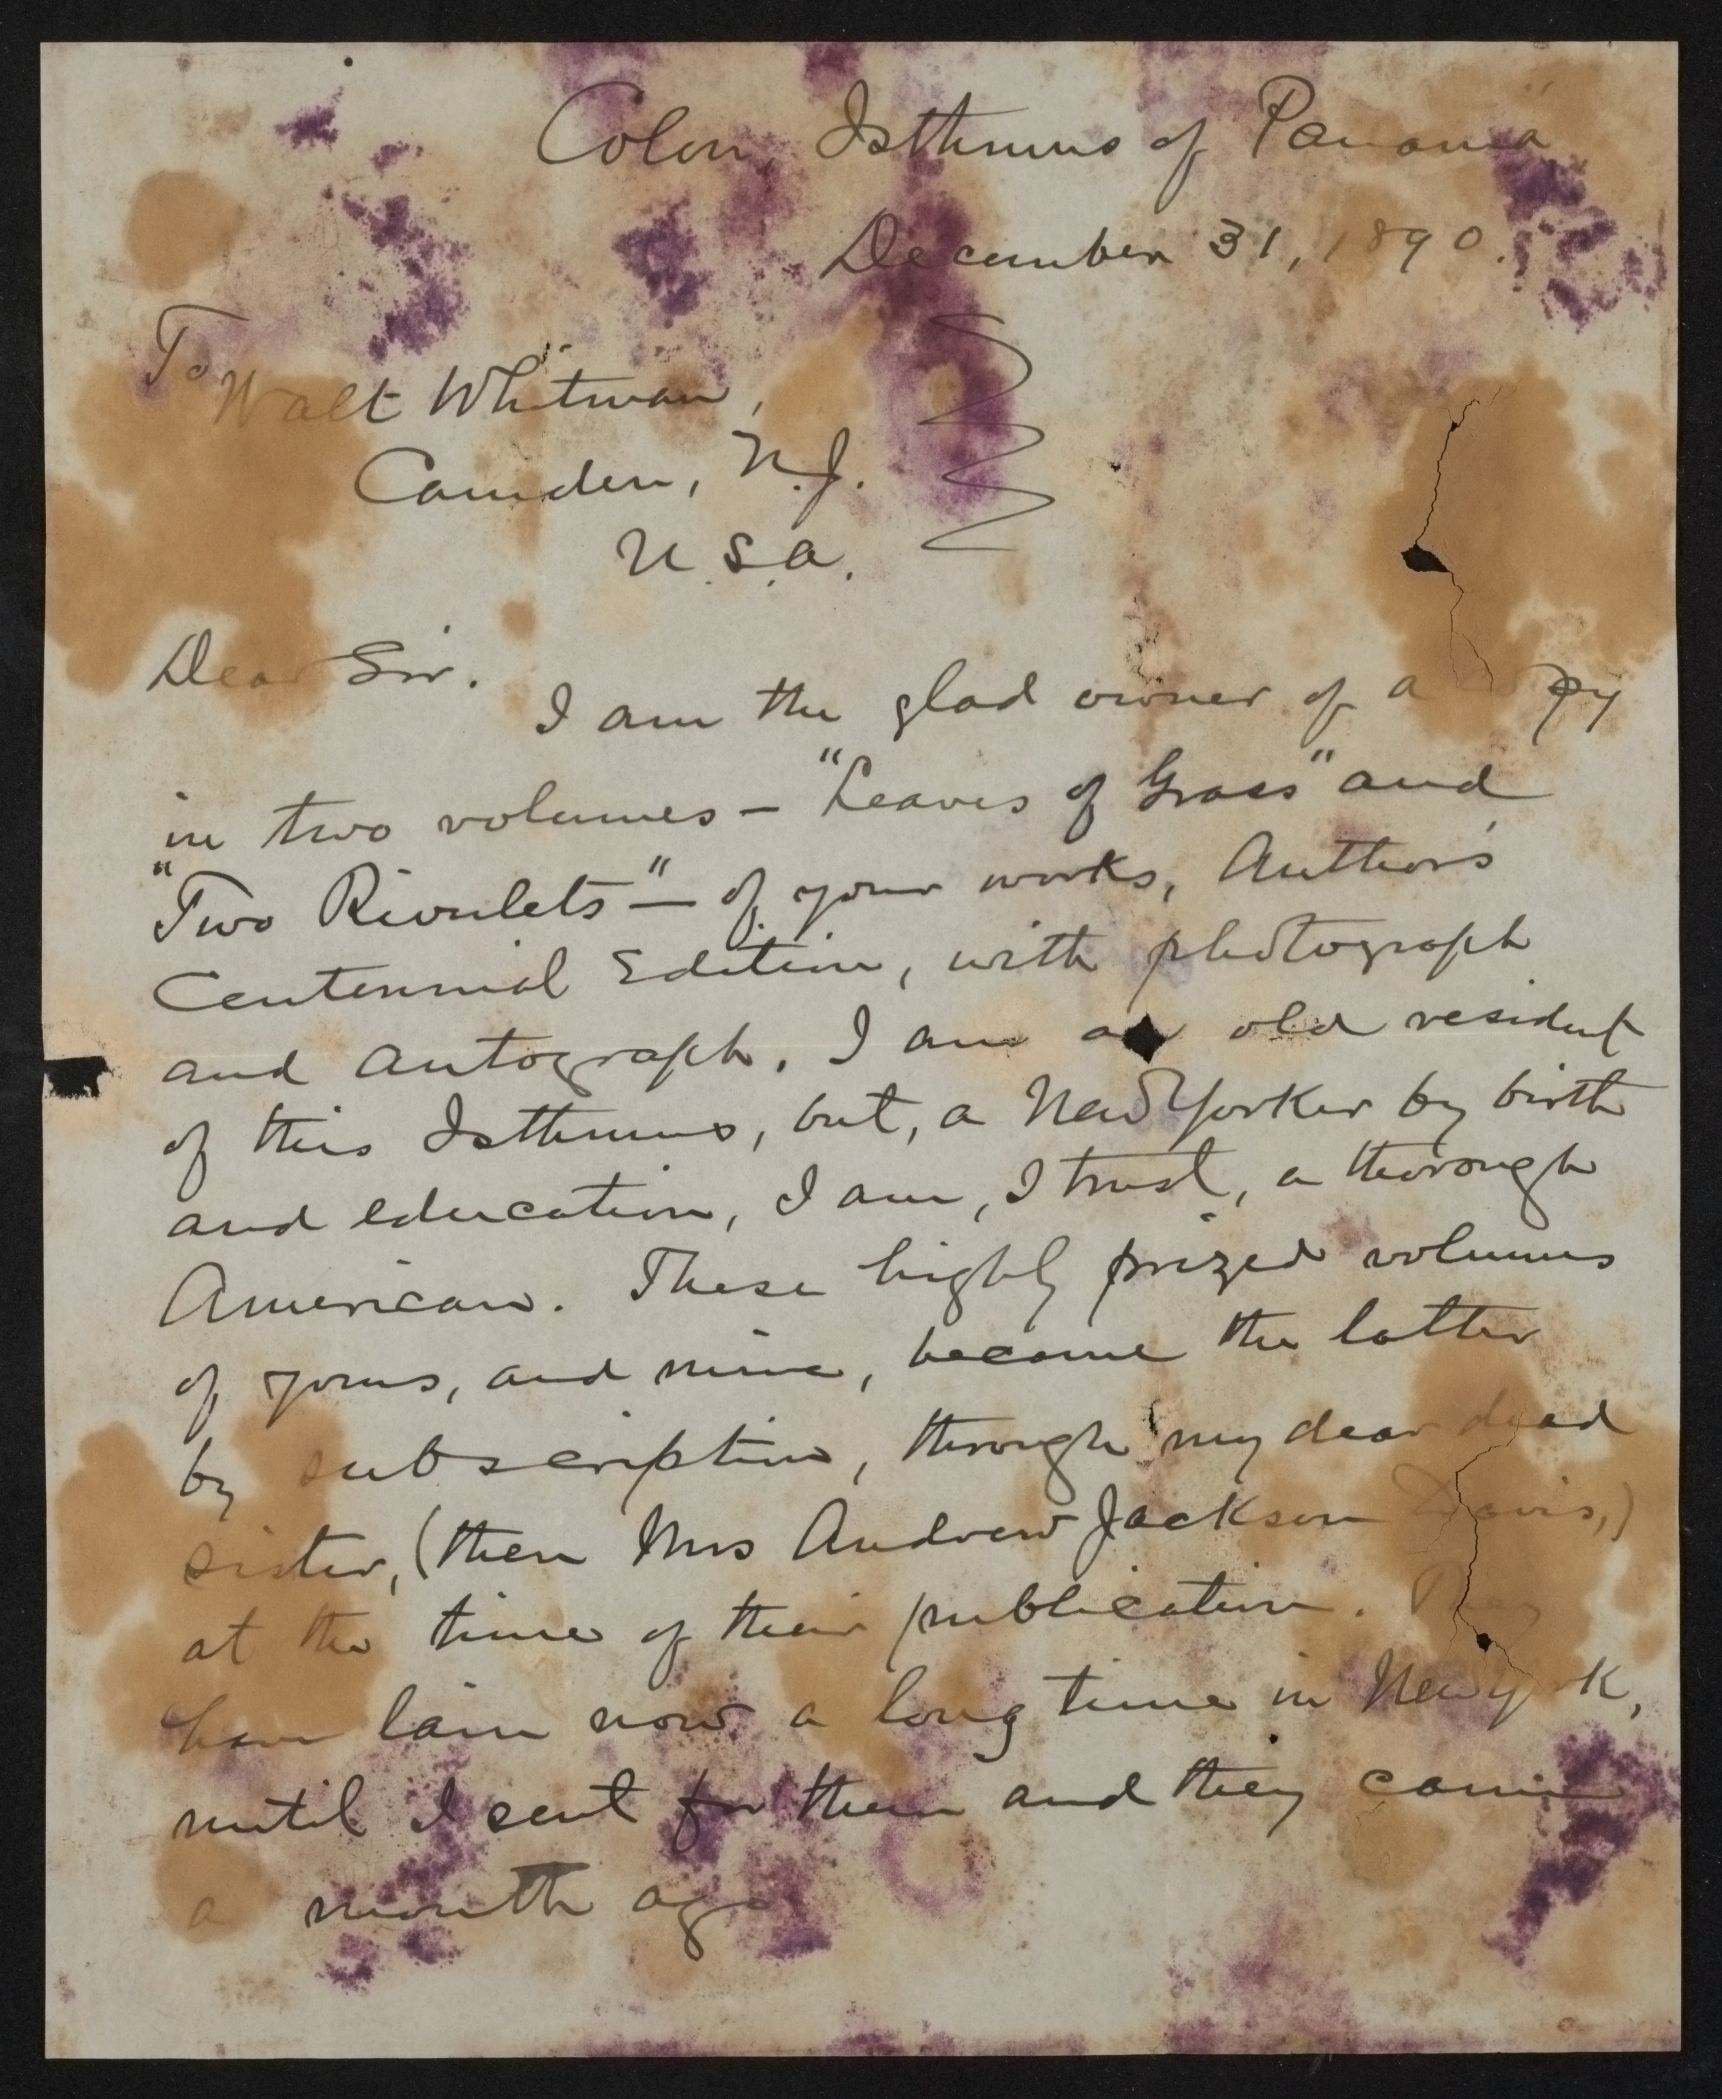 Colon, Isthmus of Panama
December 31, 1890.
To Walt Whitman,
Camden, N.J.
U.S.A.
Dear Sir.
I am the glad owner of a py
in two volumes — "Leaves of Grass" and
"Two Rivulets" — of your works, Author's
Centennial Edition, with photograph
and autograph. I am an old resident
of this Isthmus, but, a New Yorker by birth
and education, I am, I trust, a thorough
American. These highly prized volumes
of yours, and mine, became the latter
by subscription, through my dear dead
sister, (then Mrs Andrew Jackson Davis,)
at the time of their publication. They
have lain now a long time in New York,
until I sent for them and they came
a month ago